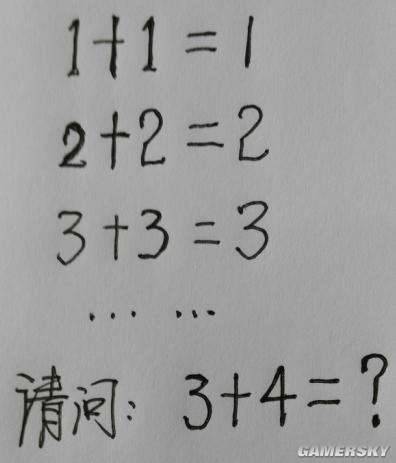 1+1=1
2+2=2
3+3=3
... ...
请问: 3+4=?
GAMERSKY